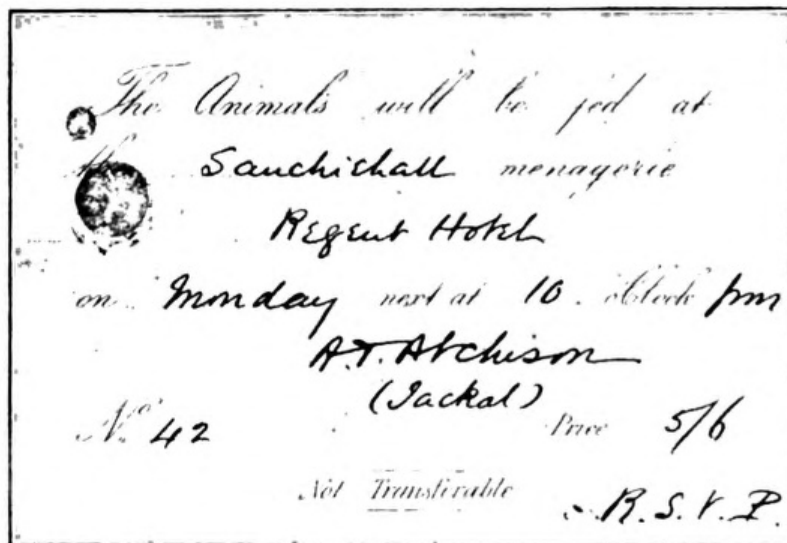 The Animals will be fed at
the Sauchiehall menagerie
Regent Hotel
on Monday next at 10 o'Clock pm
A.T. Atchison
(Jackal)
No. 42 Price 5/6
Not Transferable
R.S.V.P.